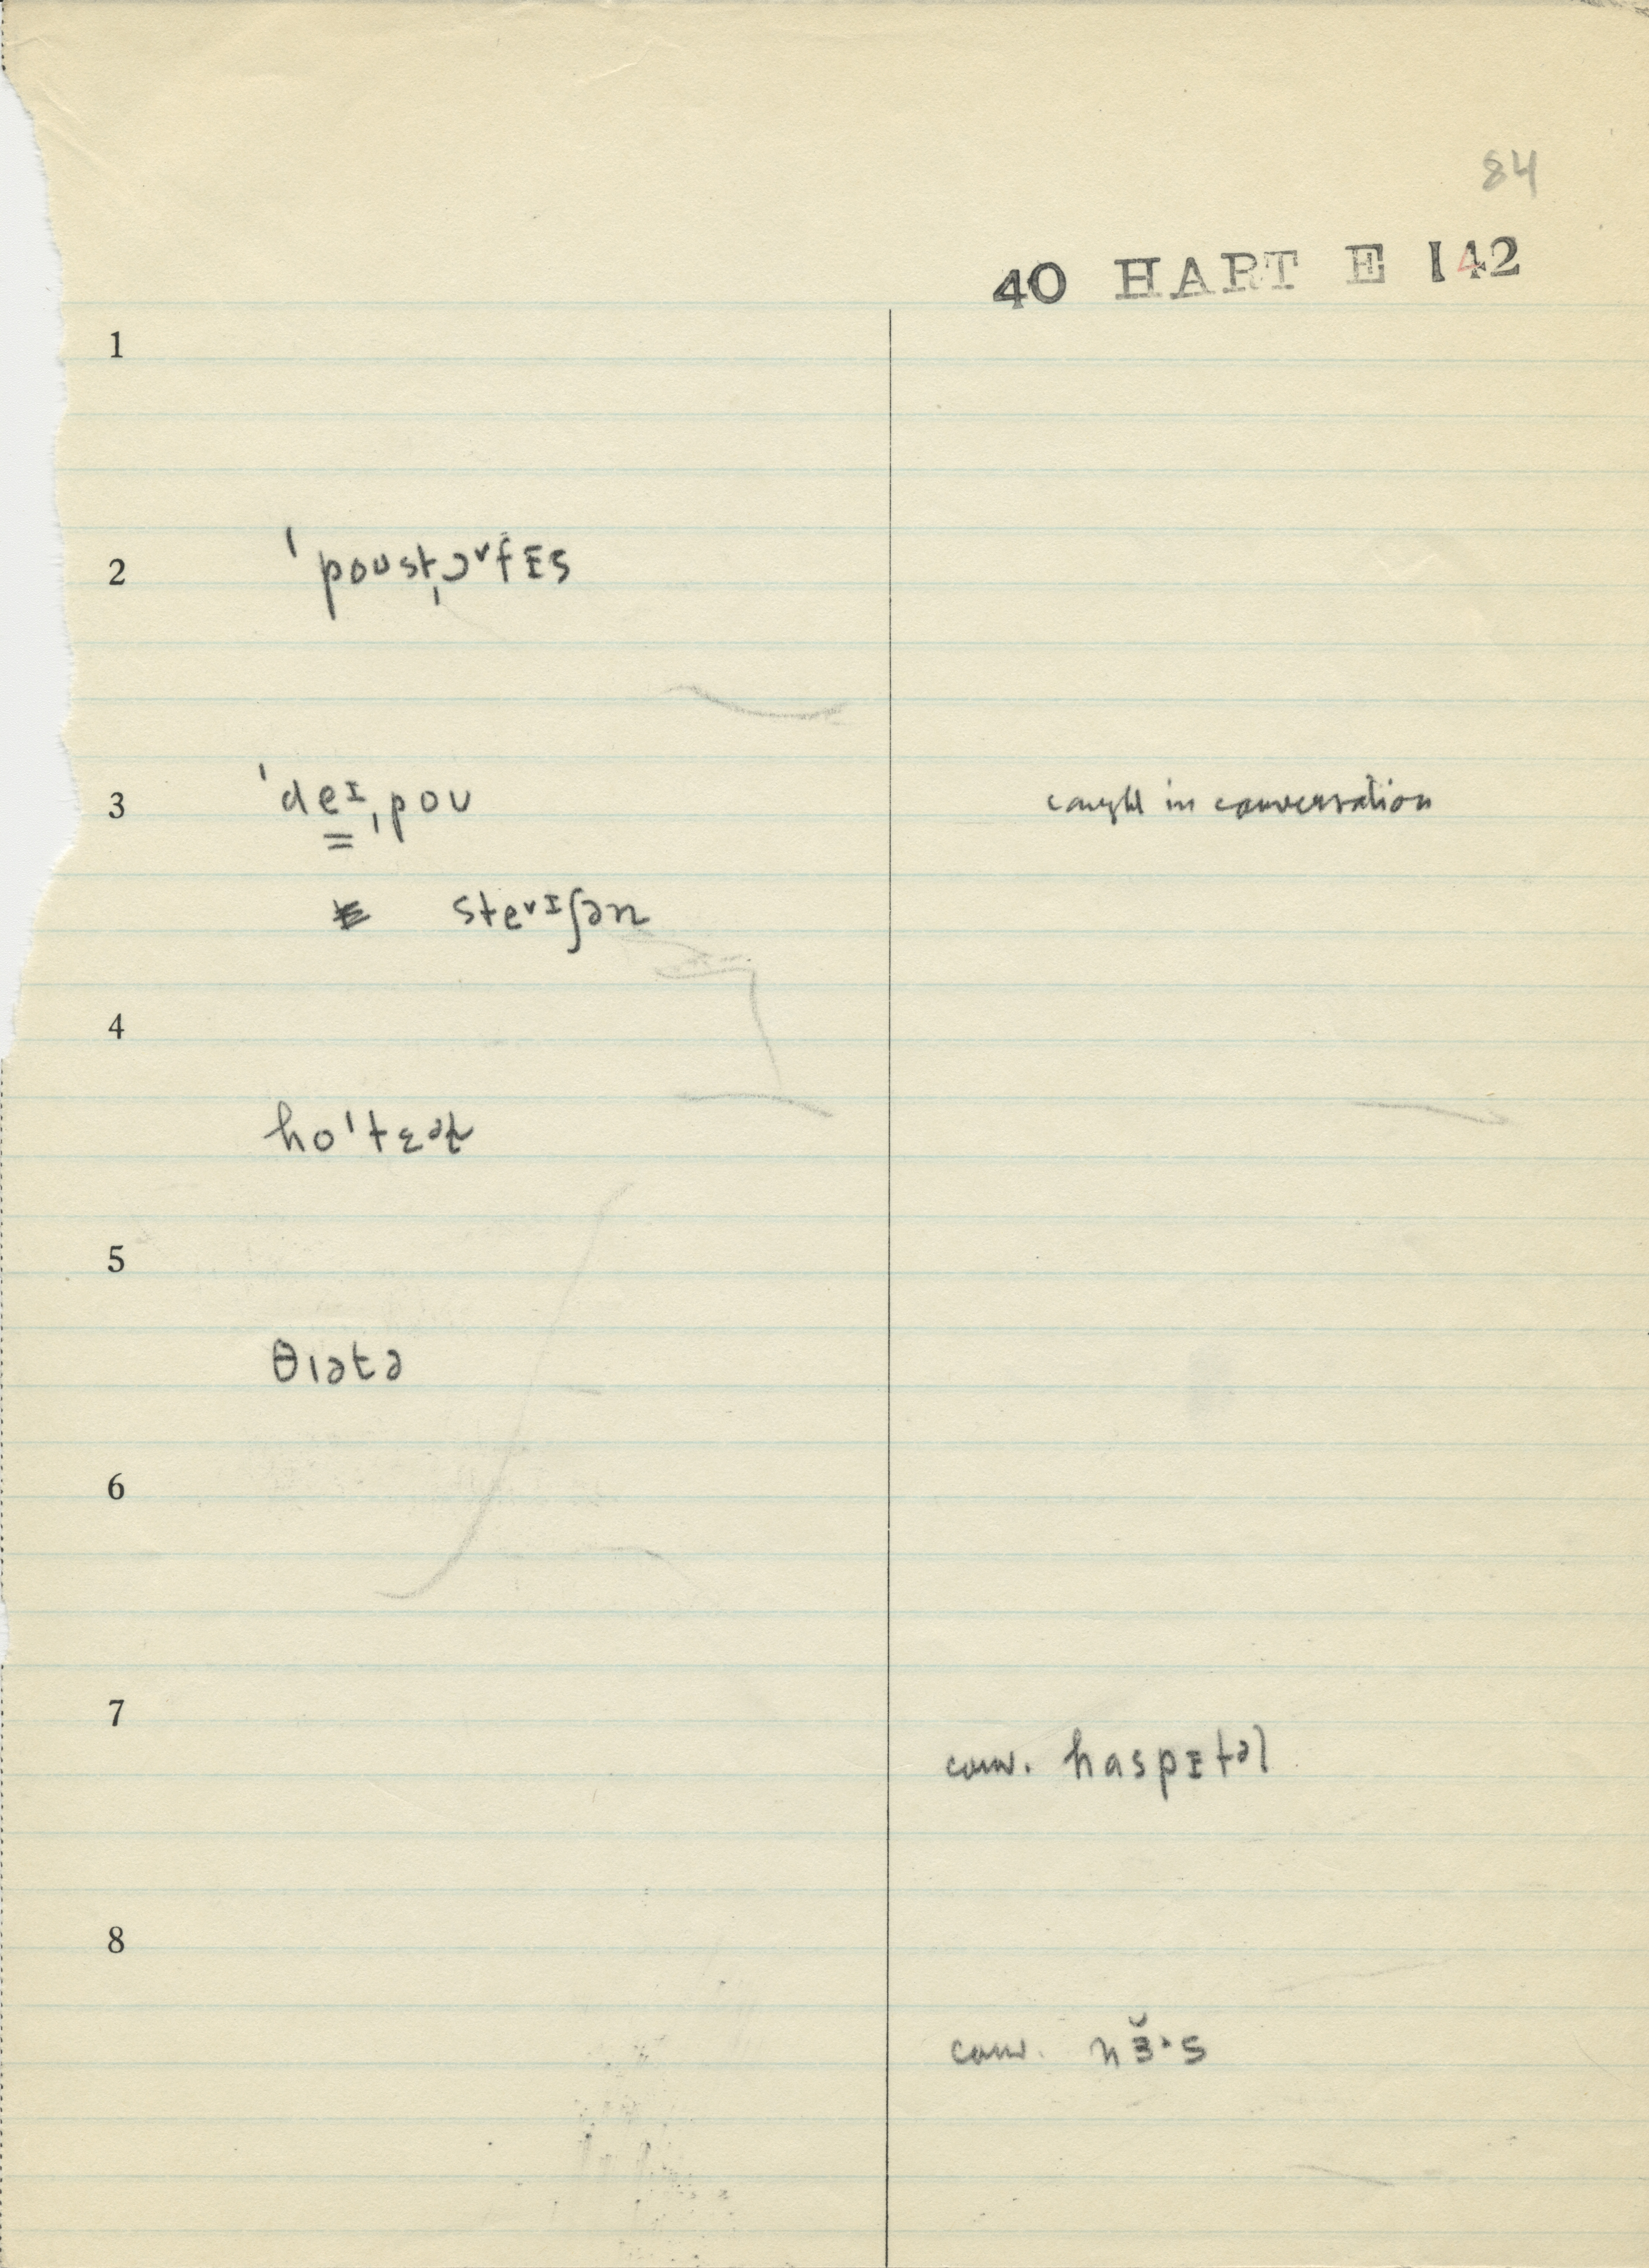 84
40 HART E 142
1
2 ˈpoʊstˌɔ˅fɪs
3 ˈdeɪˌpoʊ caught in conversation
ste˅ɪʃən
4
hoˈtɛəɫ
5
θɪətə
6
7
conv. haspɪtəl
8
conv. nɜ̆·s